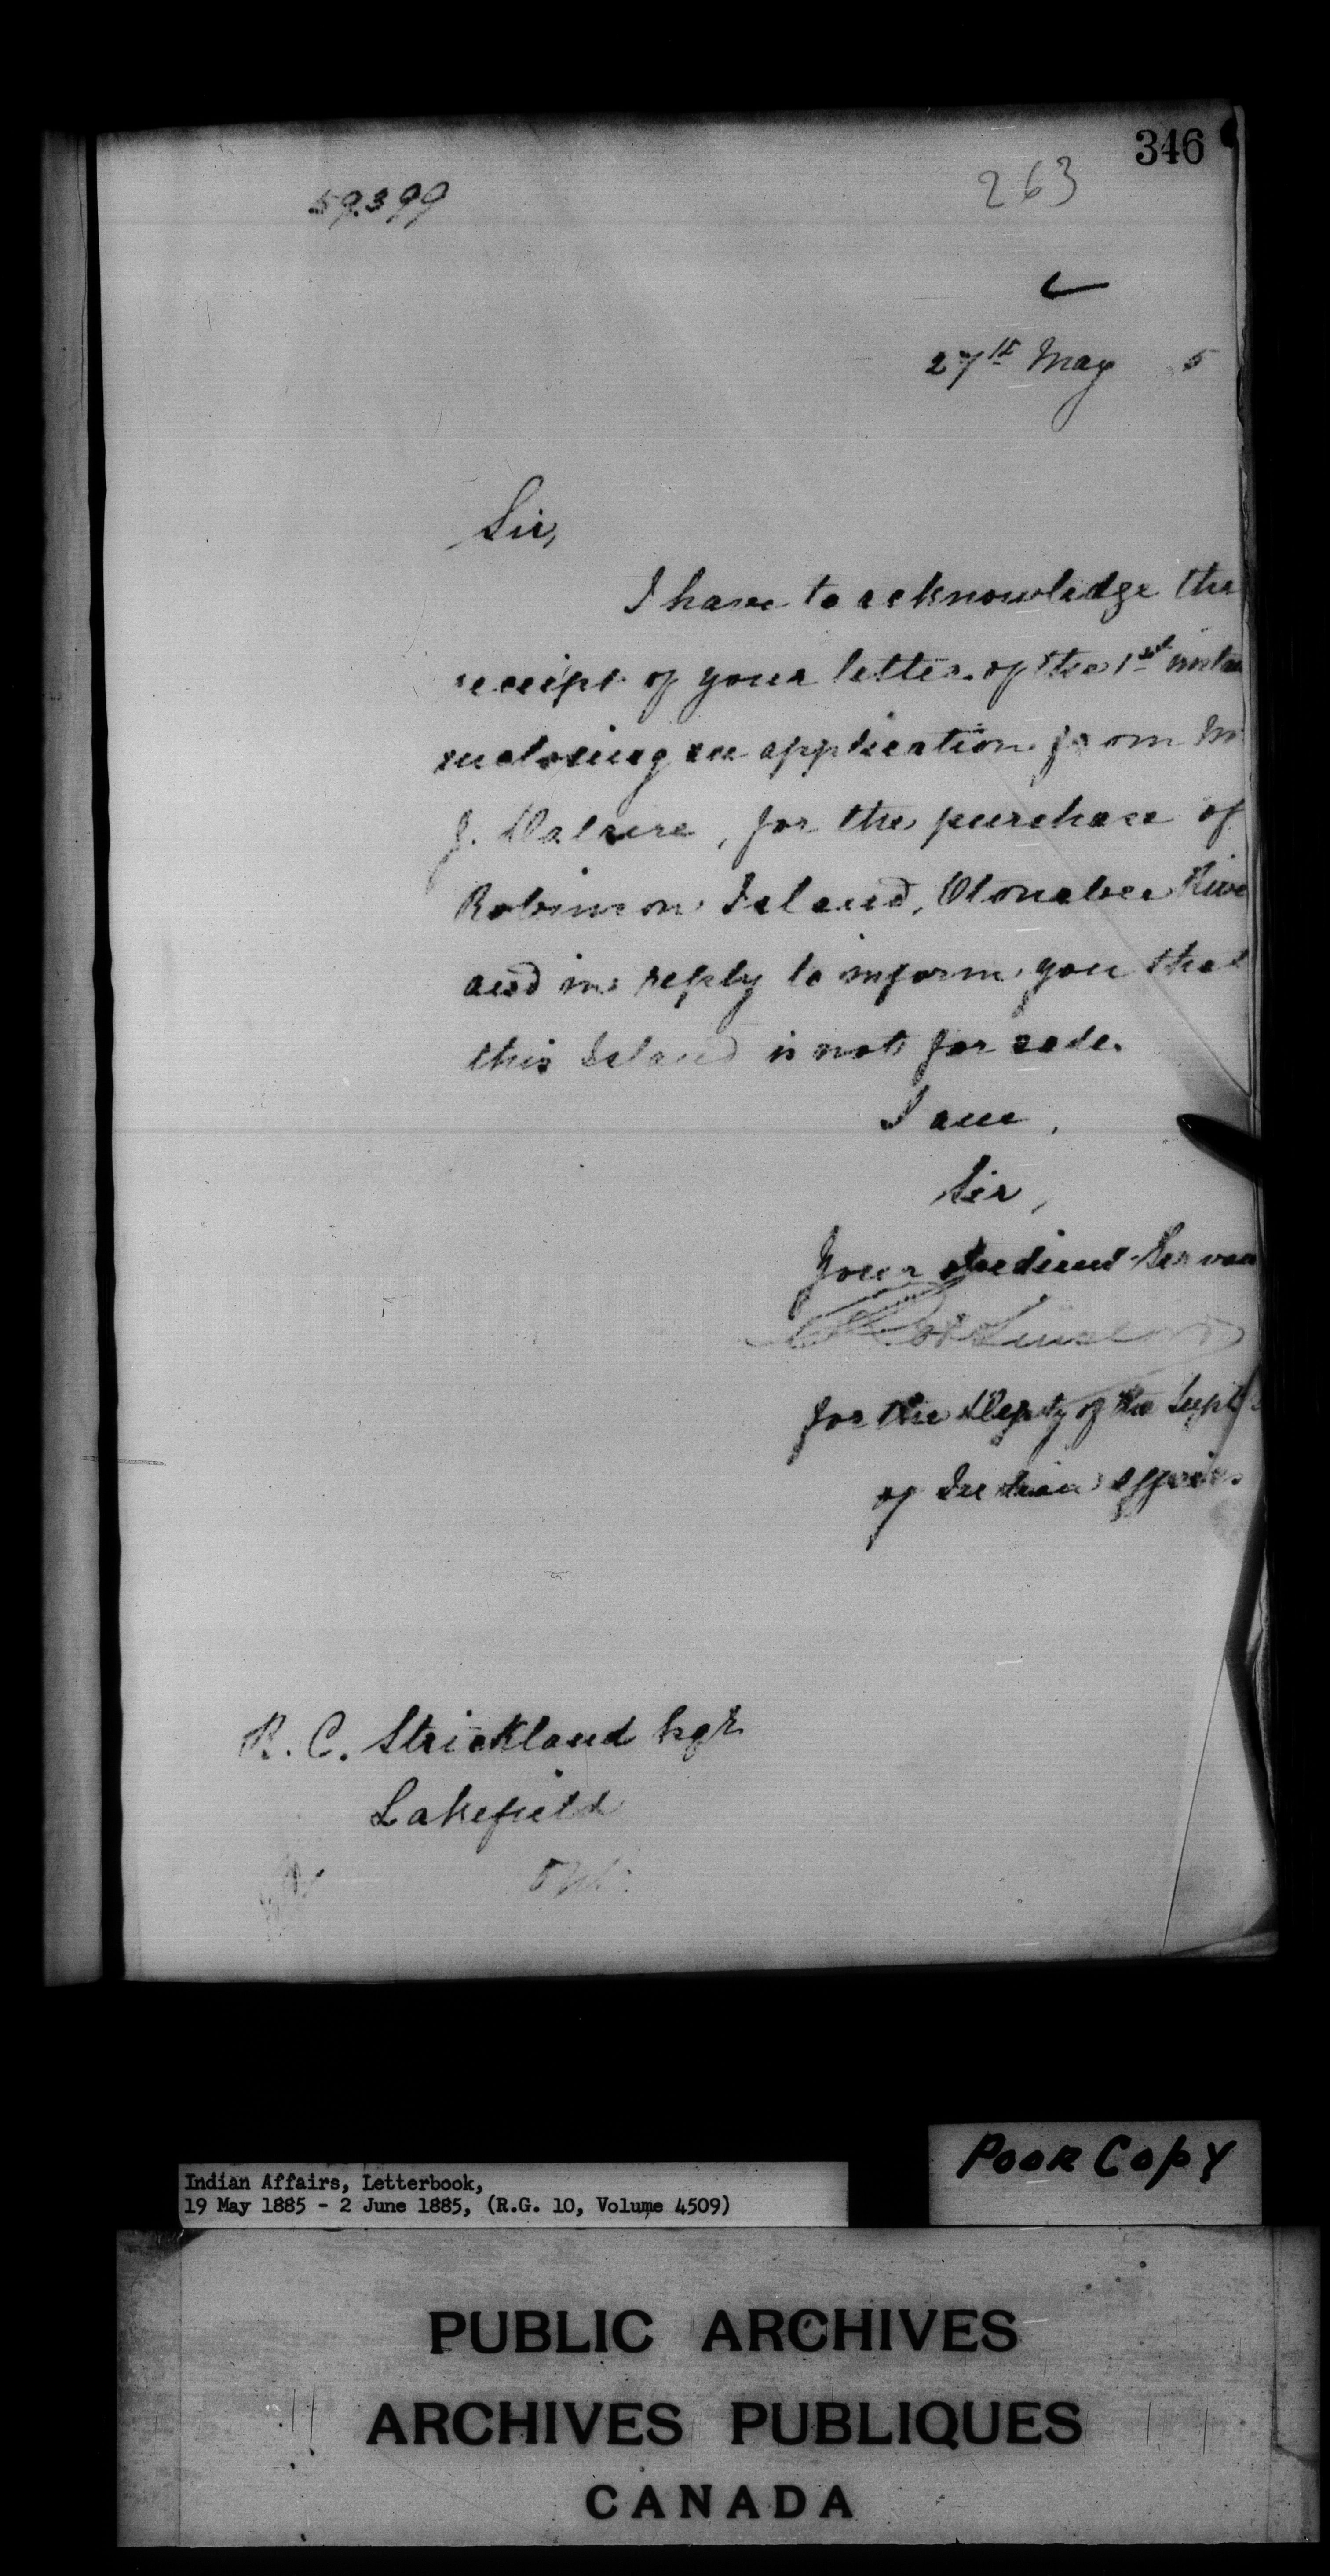 346
263
59.399
27th May 5
Sir,
I have to acknowledge the
receipt of your letter of the 1st
enclosing an application from
J. for the purchase of
Robinson Island, Otonabee
and in reply to inform you that
this Island is not for sale.
I am,
Sir,
Your obedient
for the Deputy of the Supt
of Indian affairs
R. C. Strickland Esqr
Lakefield
Ont.
Poor Copy
Indian Affairs, Letterbook,
19 May 1885 - 2 June 1885, (R.G. 10, Volume 4509)
PUBLIC ARCHIVES
ARCHIVES PUBLIQUES
CANADA